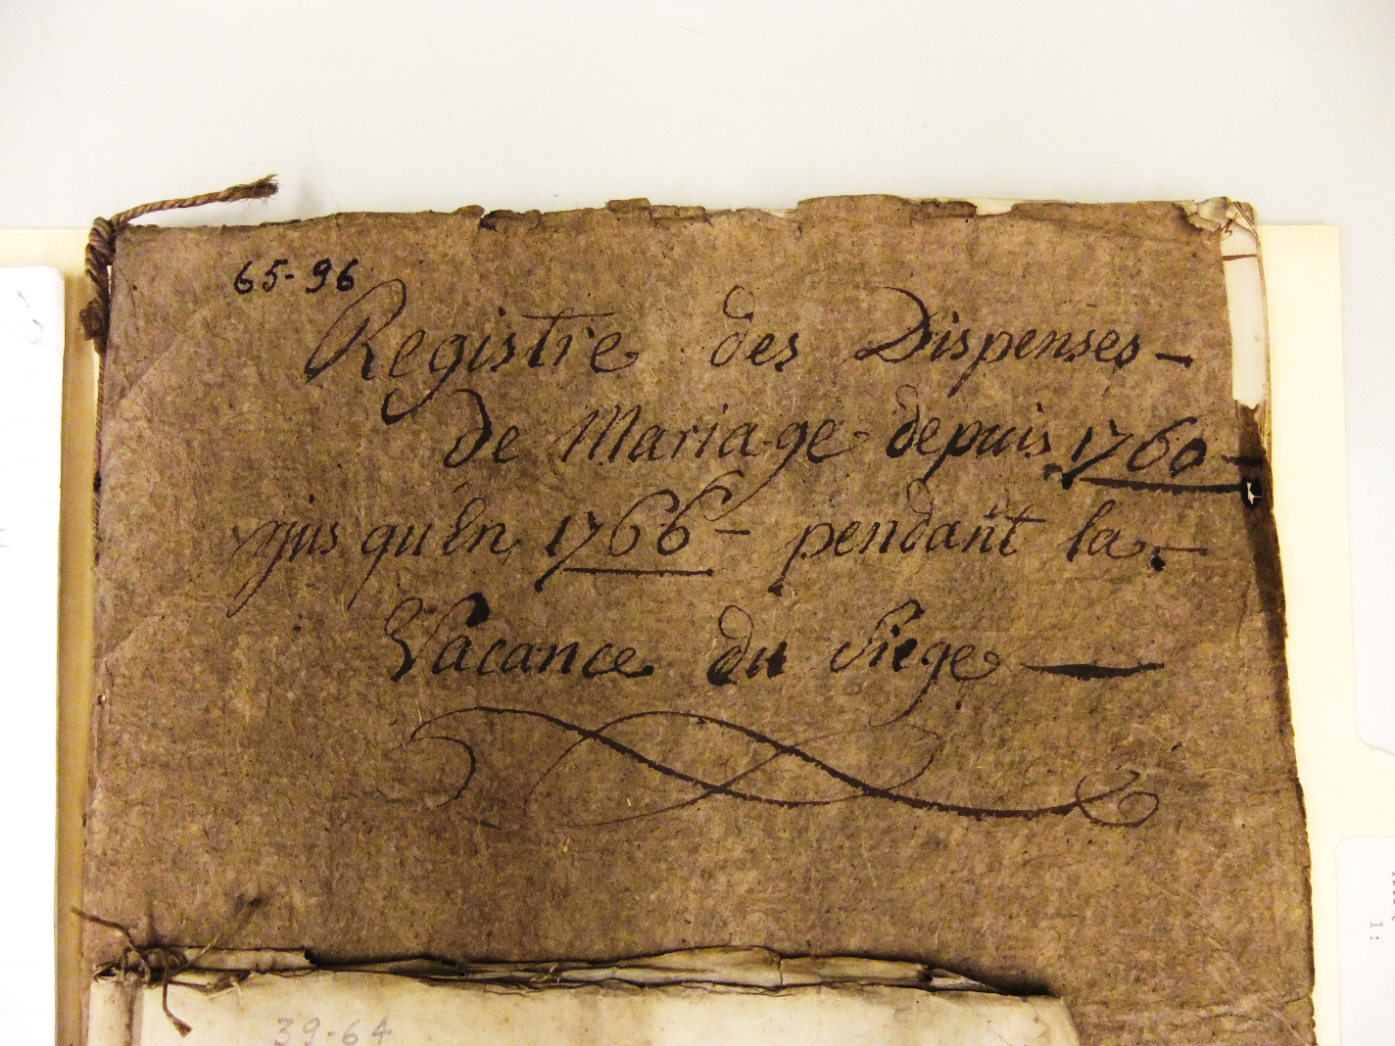 65-96
Registre des Dispenses -
de Mariage depuis 1760 -
jus qu'En 1766 - pendant la -
Vacance du Siege -
39-64
1: